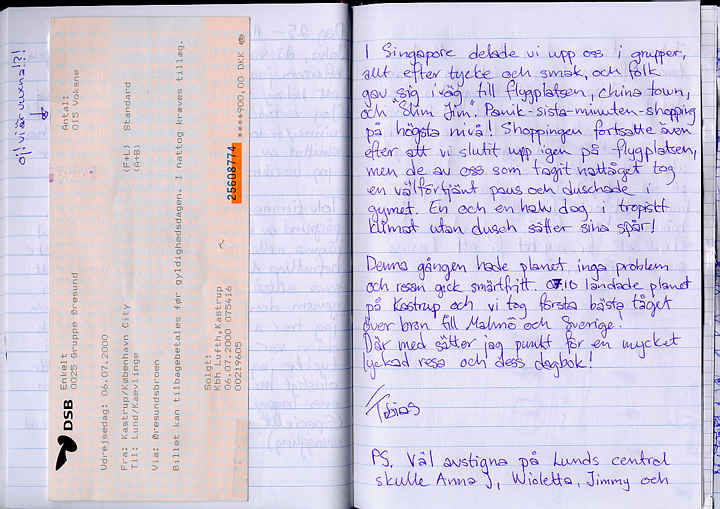 oj! vi är vuxna!?!
DSB
Enkelt
0025 Gruppe Øresund
Antal:
015 Voksne
Udrejsedag: 06.07.2000
Fra: Kastrup/København City (F+L) Standard
Til: Lund/Kaevlinge (A+B)
Via: Øresundsbroen
Billet kan tilbagebetales før gyldighedsdagen. I nattog kræves tillæg.
Solgt:
Kbh Lufth,Kastrup
06.07.2000 075416
00219605
25608774
****900,00 DKK
I Singapore delade vi upp oss i grupper,
allt efter tycke och smak, och folk
gav sig iväg till flygplatsen, china town,
och "Slim Jim". Panik-sista-minuten-shopping
på högsta nivå! Shoppingen fortsatte även
efter att vi slutit upp igen på flygplatsen,
men de av oss som tagit nattåget tog
en välförtjänt paus och duschade i
gymet. En och en halv dag i tropiskt
klimat utan dusch sätter sina spår!
Denna gången hade planet inga problem
och resan gick smärtfritt. 07.10 landade planet
på Kastrup och vi tog första bästa tåget
över bron till Malmö och Sverige.
Där med sätter jag punkt för en mycket
lyckad resa och dess dagbok!
//Tobias
PS. Väl avstigna på Lunds central
skulle Anna J, Wioletta, Jimmy och